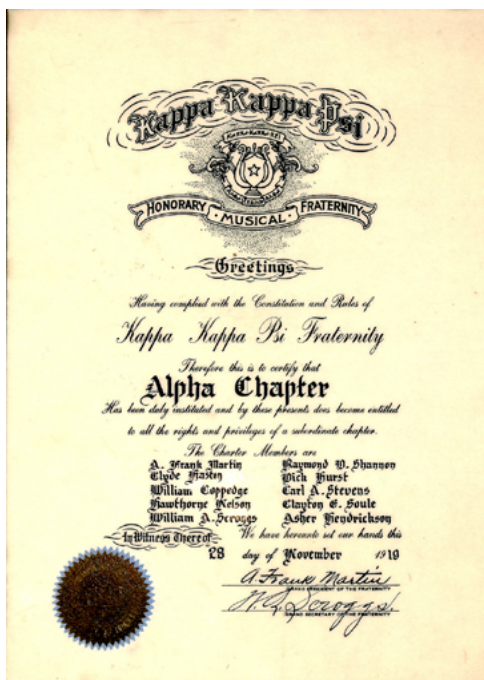 Kappa Kappa Psi
HONORARY · MUSICAL · FRATERNITY
Greetings
Having complied with the Constitution and Rules of
Kappa Kappa Psi Fraternity
Therefore this is to certify that
Alpha Chapter
Has been duly instituted and by these presents does become entitled
to all the rights and privileges of a subordinate chapter.
The Charter Members are
A. Frank Martin Raymond D. Shannon
Clyde Haston Dick Hurst
William Coppedge Carl A. Stevens
Hawthorne Nelson Clayton E. Soule
William A. Scroggs Asher Hendrickson
In Witness Thereof We have hereunto set our hands this
28 day of November 1919
A. Frank Martin
GRAND PRESIDENT OF THE FRATERNITY
W. A. Scroggs.
GRAND SECRETARY OF THE FRATERNITY